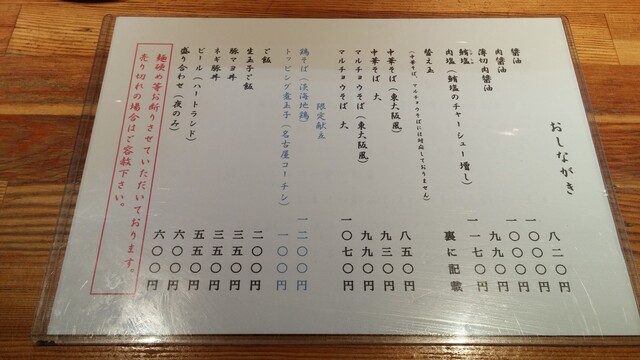 おしながき
醤油 八二〇円
肉醤油 一〇〇〇円
薄切肉醤油 一〇〇〇円
鮪塩 九九〇円
肉塩(鮪塩のチャーシュー増し) 一一七〇円
替え玉 裏に記載
(中華そば、マルチョウそばには対応しておりません)
中華そば(東大阪風) 八五〇円
中華そば 大 九三〇円
マルチョウそば(東大阪風) 九九〇円
マルチョウそば 大 一〇七〇円
限定献立
鶏そば(淡海地鶏) 一二〇〇円
トッピング煮玉子(名古屋コーチン) 一〇〇円
ご飯 二〇〇円
生玉子ご飯 三五〇円
豚マヨ丼 三五〇円
ネギ豚丼 五五〇円
ビール(ハートランド) 六〇〇円
盛り合わせ(夜のみ) 六〇〇円
麺硬め等お断りさせていただいております。
売り切れの場合はご容赦下さい。